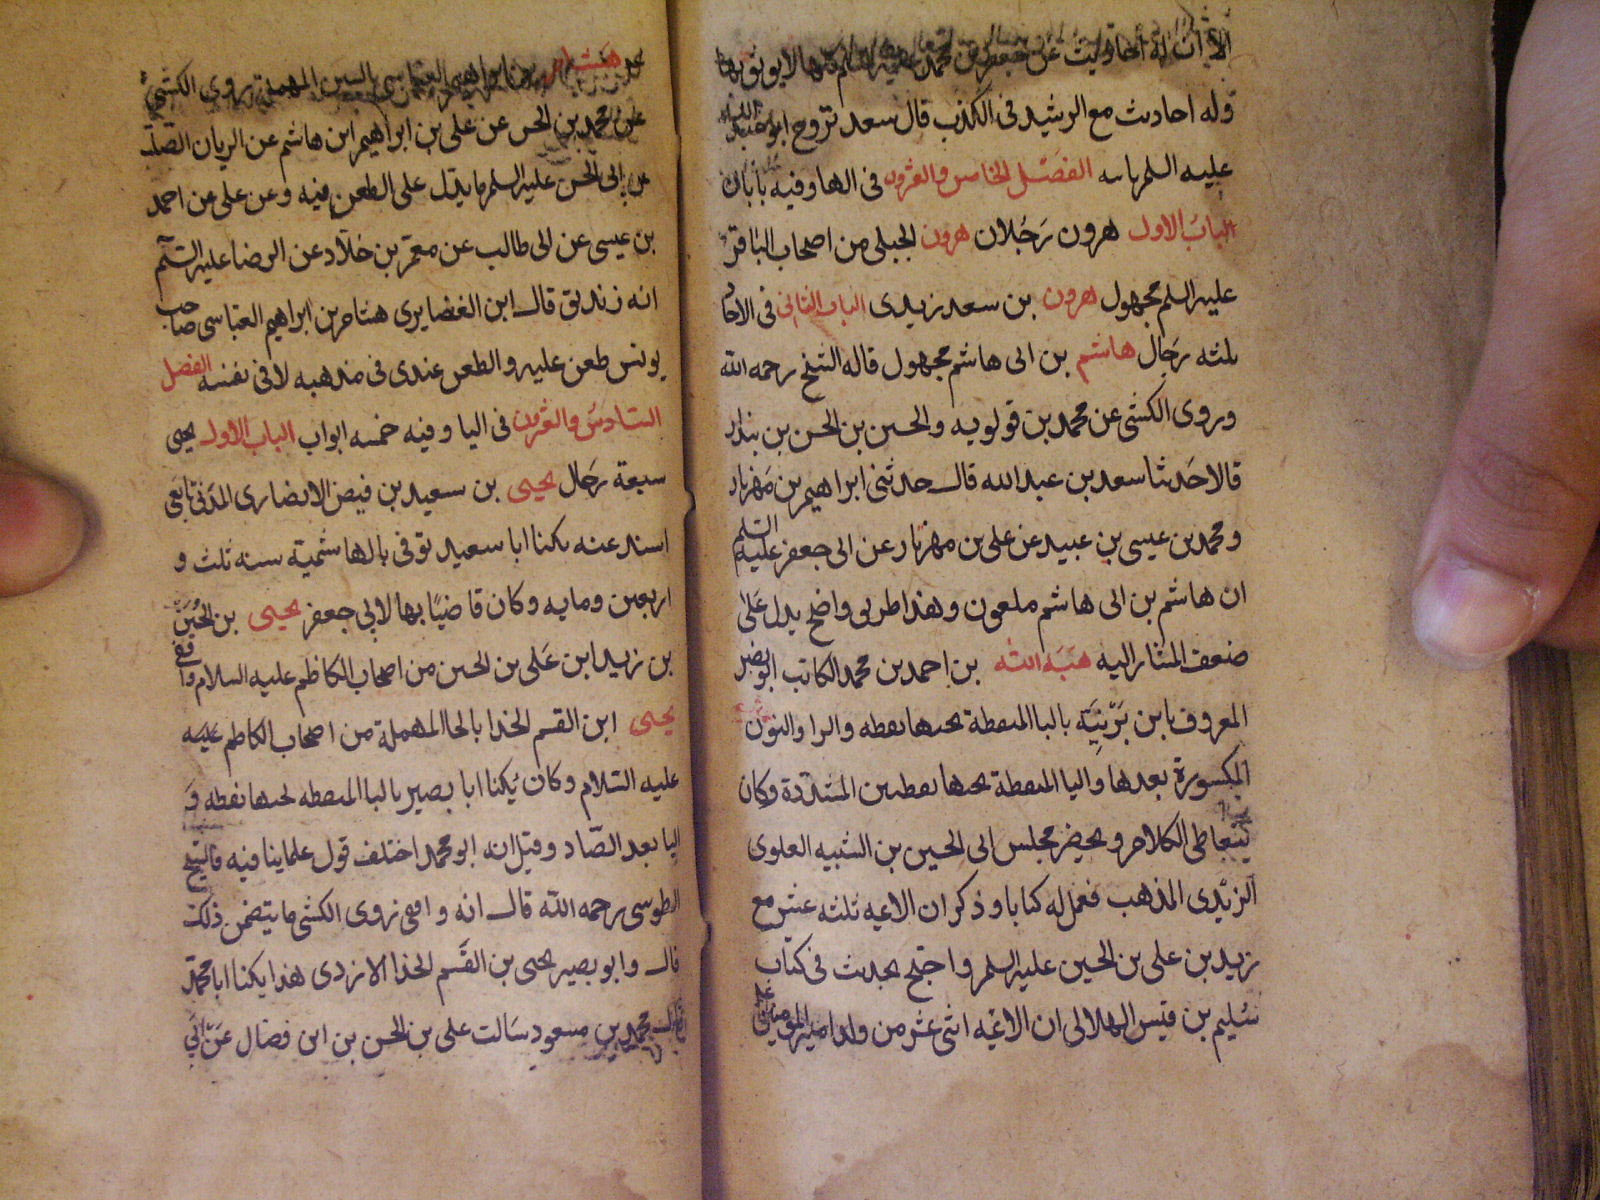 الا ان له احاديث عن جعفر بن محمد عليه السلم كلها لا يوثق بها
وله احاديث مع الرشيد فى الكذب قال سعد تزوج ابو عبد الله
عليه السلم بامه الفصل الخامس والعشرون فى الها وفيه بابان
الباب الاول هرون رجلان هرون الجبلى من اصحاب الباقر
عليه السلم مجهول هرون بن سعد زيدى الباب الثانى فى الاحاد
ثلثه رجال هاشم بن ابى هاشم مجهول قاله الشيخ رحمه الله
وروى الكشى عن محمد بن قولويه والحسين بن الحسن بن بندار
قالا حدثنا سعد بن عبد الله قال حدثنى ابراهيم بن مهزيار
ومحمد بن عيسى بن عبيد عن على بن مهزيار عن ابى جعفر عليه السلم
ان هاشم بن ابى هاشم ملعون وهذا طريق واضح يدل على
ضعف المشار اليه هبة الله بن احمد بن محمد الكاتب ابو نصر
المعروف بابن برنية بالبا المنقطة تحتها نقطه والرا والنون
المكسورة بعدها واليا المنقطة تحتها نقطتين المشددة وكان
يتعاطى الكلام ويحضر مجلس ابى الحسين بن الشبيه العلوى
الزيدى المذهب فعمل له كتابا وذكر ان الائمه ثلثه عشر مع
زيد بن على بن الحسين عليه السلم واحتج بحديث فى كتاب
سليم بن قيس الهلالى ان الائمه اثنى عشر من ولد امير المومنين
هشام بن ابراهيم العباسى بالسين المهملة روى الكشى
عن محمد بن الحسن عن على بن ابراهيم ابن هاشم عن الريان الصلت
عن ابى الحسن عليه السلم ما يدل على الطعن فيه وعن على عن احمد
بن عيسى عن ابى طالب عن معمر بن خلاد عن الرضا عليه السلم
انه زنديق قال ابن الغضايرى هشام بن ابراهيم العباسى صاحب
يونس طعن عليه والطعن عندى فى مذهبه لا فى نفسه الفصل
السادس والعشرون فى اليا وفيه خمسه ابواب الباب الاول يحيى
سبعة رجال يحيى بن سعيد بن قيس الانصارى المدنى تابعى
اسند عنه يكنا ابا سعيد توفى بالهاشمية سنه ثلث و
اربعين ومايه وكان قاضيا بها لابى جعفر يحيى بن الحسين
بن زيد ابن على بن الحسين من اصحاب الكاظم عليه السلام واقفى
يحيى ابن القسم الحذا بالحا المهملة من اصحاب الكاظم عليه
عليه السلام وكان يكنا ابا بصير بالبا المنقطه تحتها نقطه و
اليا بعد الصاد وقيل انه ابو محمد اختلف قول علماينا فيه فالشيخ
الطوسى رحمه الله قال انه واقفى وروى الكشى ما يتضمن ذلك
قال وابو بصير يحيى بن القسم الحذا الازدى هذا يكنا ابا محمد
قال محمد بن مسعود سالت على بن الحسن بن ابن فضال عن ابى